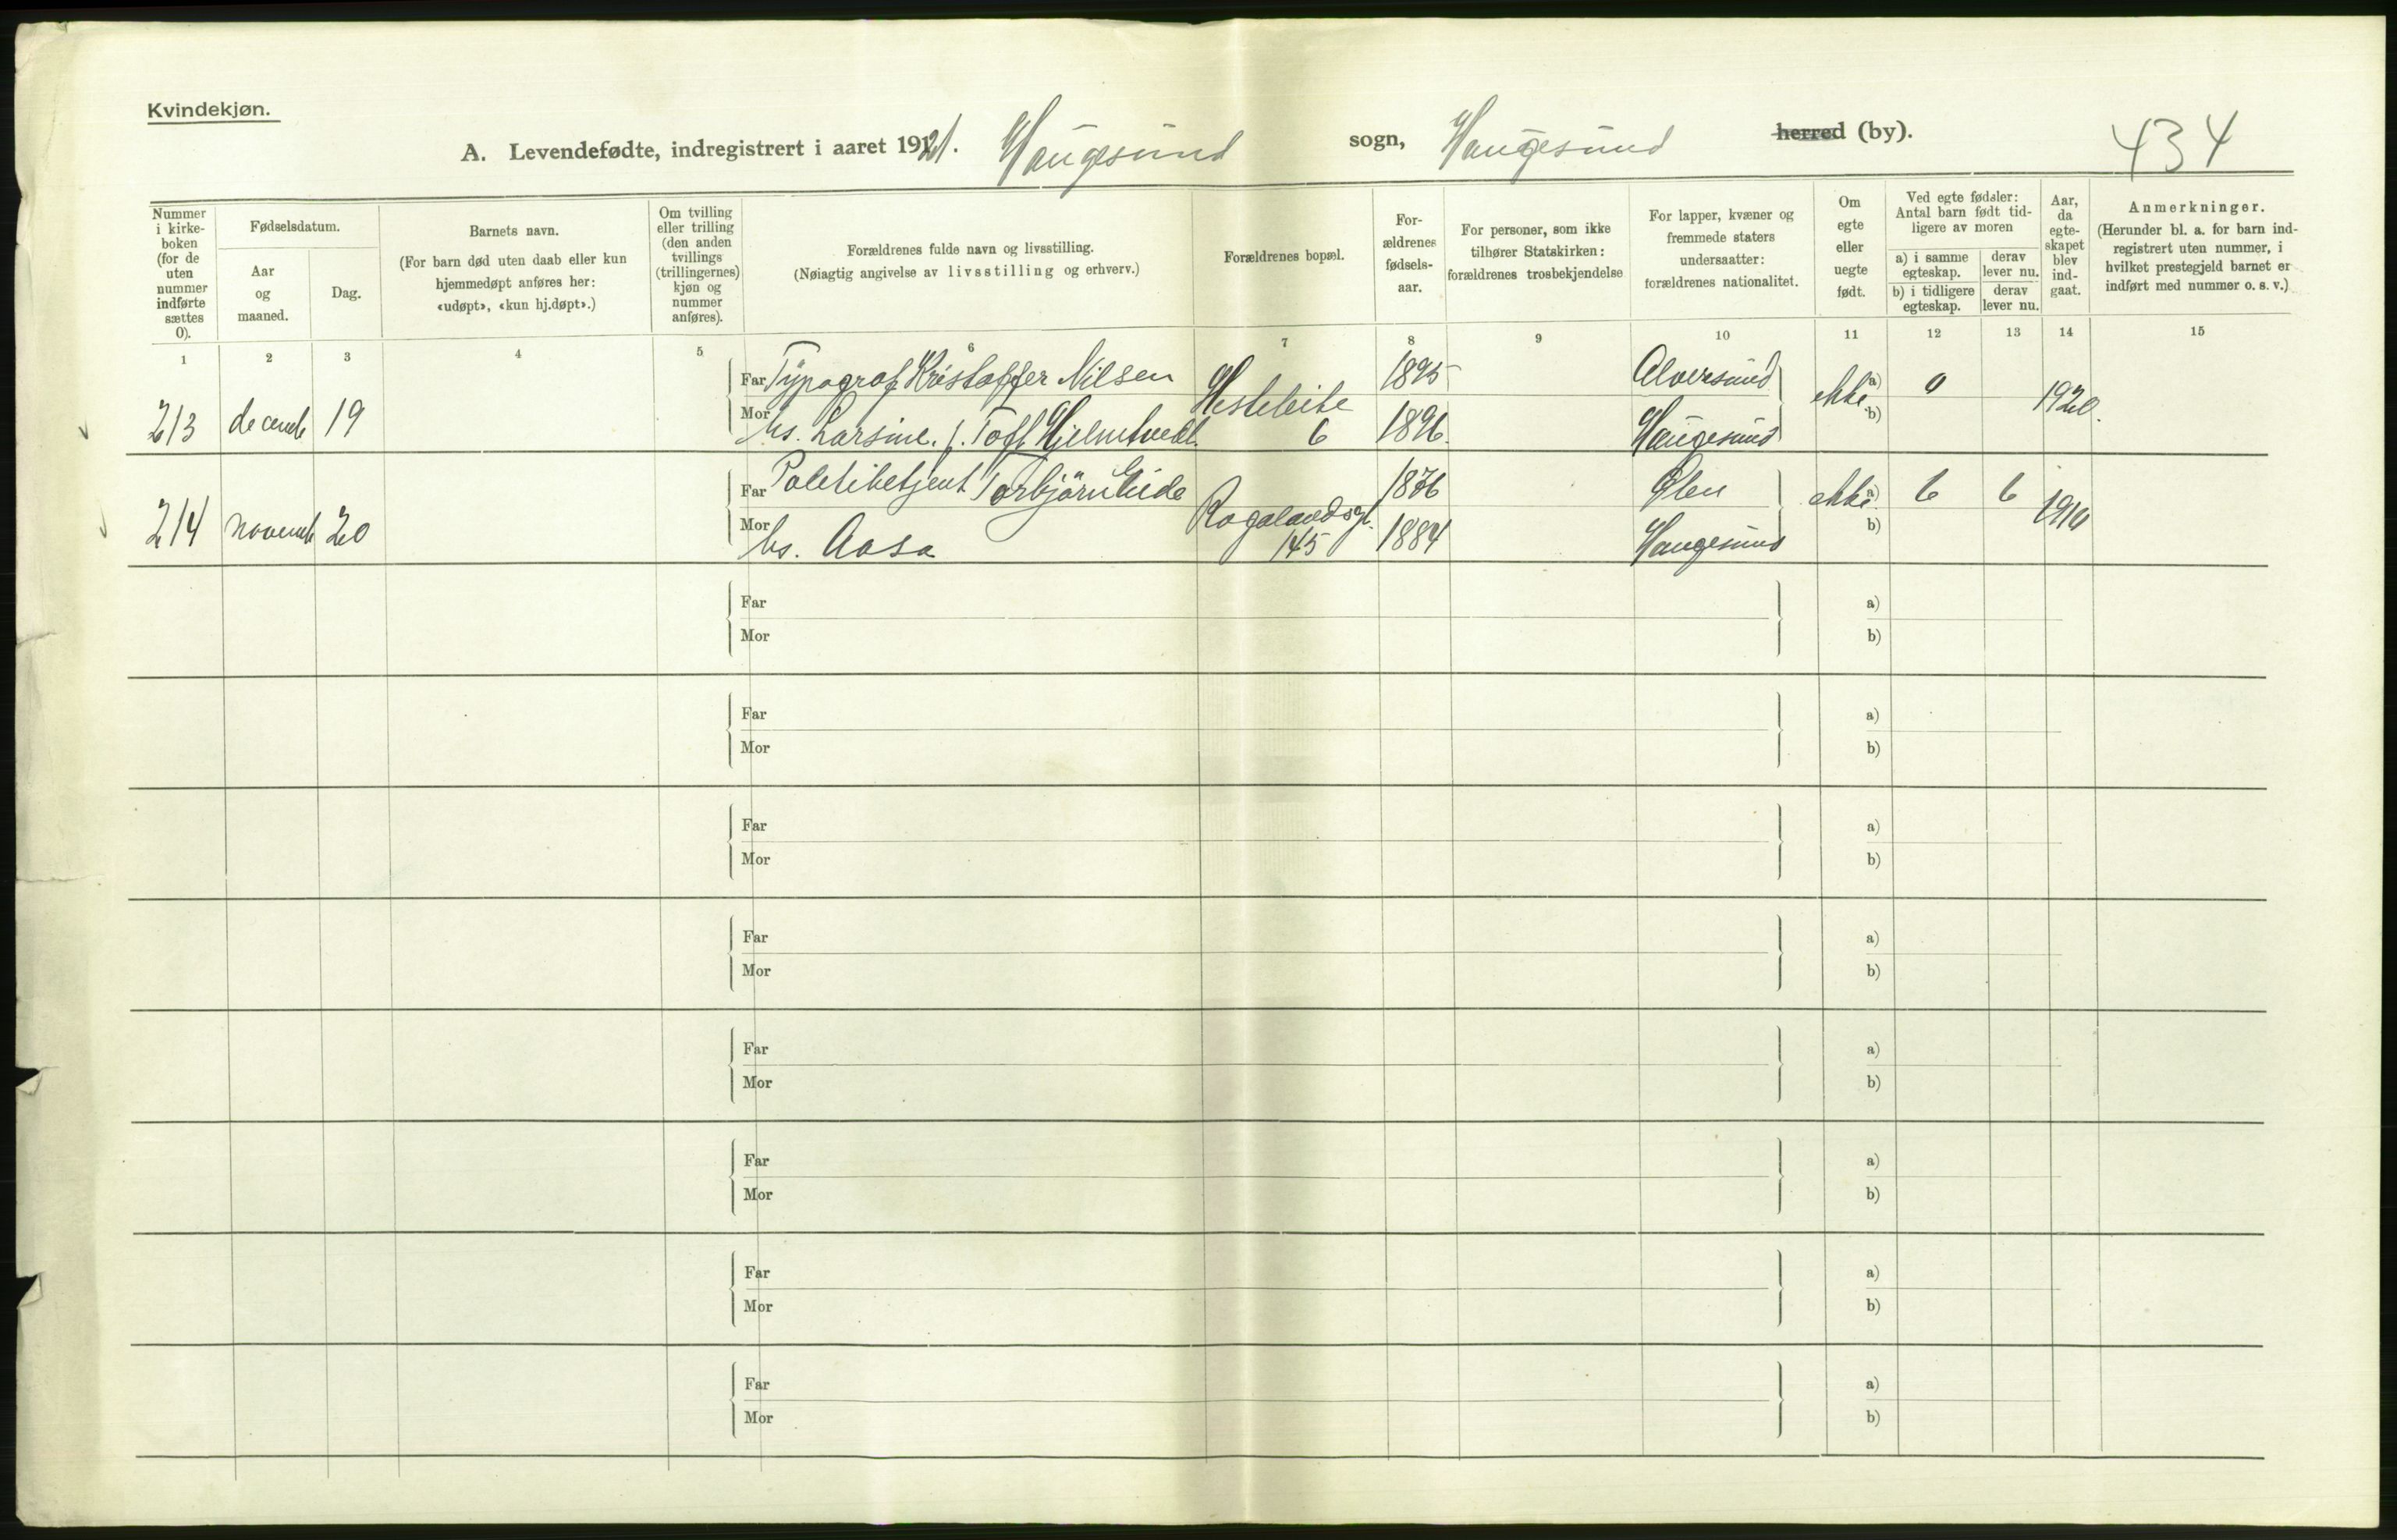 Kvindekjøn.
A. Levendefødte, indregistrert i aaret 1921. Haugesund sogn, Haugesund herred (by). 434
Nummer i kirke-boken (for de uten nummer indførte sættes 0).
Fødselsdatum.
Aar og maaned.
Dag.
Barnets navn.
(For barn død uten daab eller kun hjemmedøpt anføres her: «udøpt», «kun hj.døpt».)
Om tvilling eller trilling (den anden tvillings (trillingernes) kjøn og nummer anføres).
Forældrenes fulde navn og livsstilling.
(Nøiagtig angivelse av livsstilling og erhverv.)
Forældrenes bopæl.
For-ældrenes fødsels-aar.
For personer, som ikke tilhører Statskirken: forældrenes trosbekjendelse
For lapper, kvæner og fremmede staters undersaatter: forældrenes nationalitet.
Om egte eller uegte født.
Ved egte fødsler: Antal barn født tid-ligere av moren
a) i samme egteskap.
derav lever nu.
b) i tidligere egteskap.
derav lever nu.
Aar, da egte-skapet blev ind-gaat.
Anmerkninger.
(Herunder bl. a. for barn ind-registrert uten nummer, i hvilket prestegjeld barnet er indført med nummer o. s. v.)
1 2 3 4 5 6 7 8 9 10 11 12 13 14 15
Far Typograf Kristoffer Nilsen 1895 Alversund a) 0
213 decemb 19 Hesteleite 6 ekte 1920.
Mor hs. Larsine f. Toft Hjelmtvedt 1896 Haugesund b)
Far Politibetjent Torbjörn Eide 1876 Ølen a) 6 6
214 novemb 20 Rogalandsgt. 145 ekte 1910
Mor hs. Aasa 1884 Haugesund b)
Far a)
Mor b)
Far a)
Mor b)
Far a)
Mor b)
Far a)
Mor b)
Far a)
Mor b)
Far a)
Mor b)
Far a)
Mor b)
Far a)
Mor b)